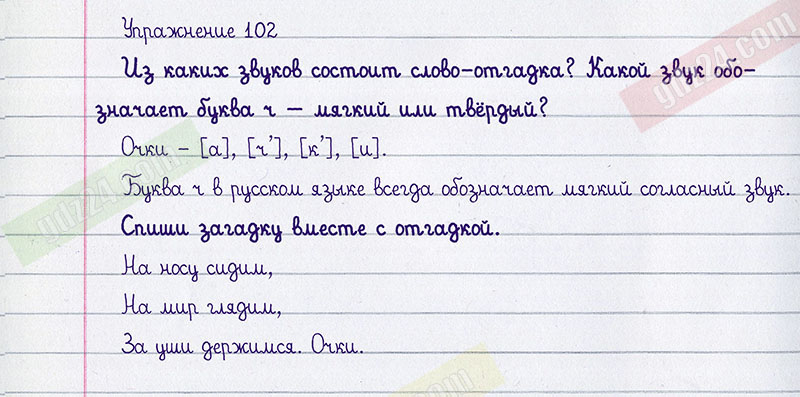 Упражнение 102
Из каких звуков состоит слово-отгадка? Какой звук обо-
значает буква ч — мягкий или твёрдый?
Очки - [а], [ч’], [к’], [и].
Буква ч в русском языке всегда обозначает мягкий согласный звук.
Спиши загадку вместе с отгадкой.
На носу сидим,
На мир глядим,
За уши держимся. Очки.
gdz24.com
gdz24.com
com